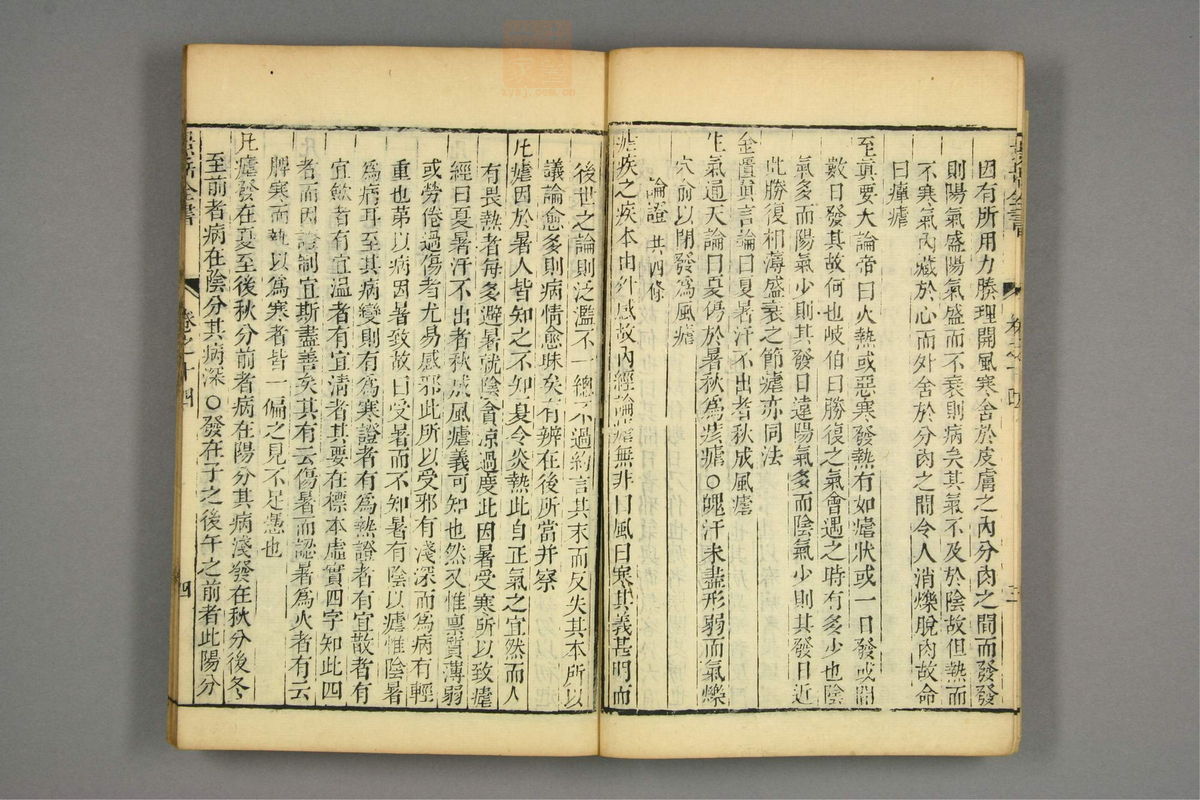 因有所用力腠理開風寒舍於皮膚之內分肉之間而發發
則陽氣盛陽氣盛而不衰則病矣其氣不及於陰故但熱而
不寒氣內藏於心而外舍於分肉之間令人消爍脫肉故命
曰癉瘧
至眞要大論帝曰火熱或惡寒發熱有如瘧狀或一日發或間
數日發其故何也岐伯曰勝復之氣會遇之時有多少也陰
氣多而陽氣少則其發日遠陽氣多而陰氣少則其發日近
此勝復相薄盛衰之節瘧亦同法
金匱眞言論曰夏暑汗不出者秋成風瘧
生氣通天論曰夏傷於暑秋爲痎瘧○魄汗未盡形弱而氣爍
穴俞以閉發爲風瘧
論證 共四條
瘧疾之疾本由外感故內經論瘧無非曰風曰寒其義甚明而
後世之論則泛濫不一總不過約言其末而反失其本所以
議論愈多則病情愈昧矣有辨在後所當并察
凡瘧因於暑人皆知之不知夏令炎熱此自正氣之宜然而人
有畏熱者每多避暑就陰貪涼過度此因暑受寒所以致瘧
經曰夏暑汗不出者秋成風瘧義可知也然又惟稟質薄弱
或勞倦過傷者尤易感邪此所以受邪有淺深而爲病有輕
重也第以病因暑致故曰受暑而不知暑有陰以瘧惟陰暑
爲病耳至其病變則有爲寒證者有爲熱證者有宜散者有
宜斂者有宜溫者有宜清者其要在標本虛實四字知此四
者而因證制宜斯盡善矣其有云傷暑而認暑爲火者有云
脾寒而執以爲寒者皆一偏之見不足憑也
凡瘧發在夏至後秋分前者病在陽分其病淺發在秋分後冬
至前者病在陰分其病深○發在子之後午之前者此陽分
景岳全書
卷之十四
四